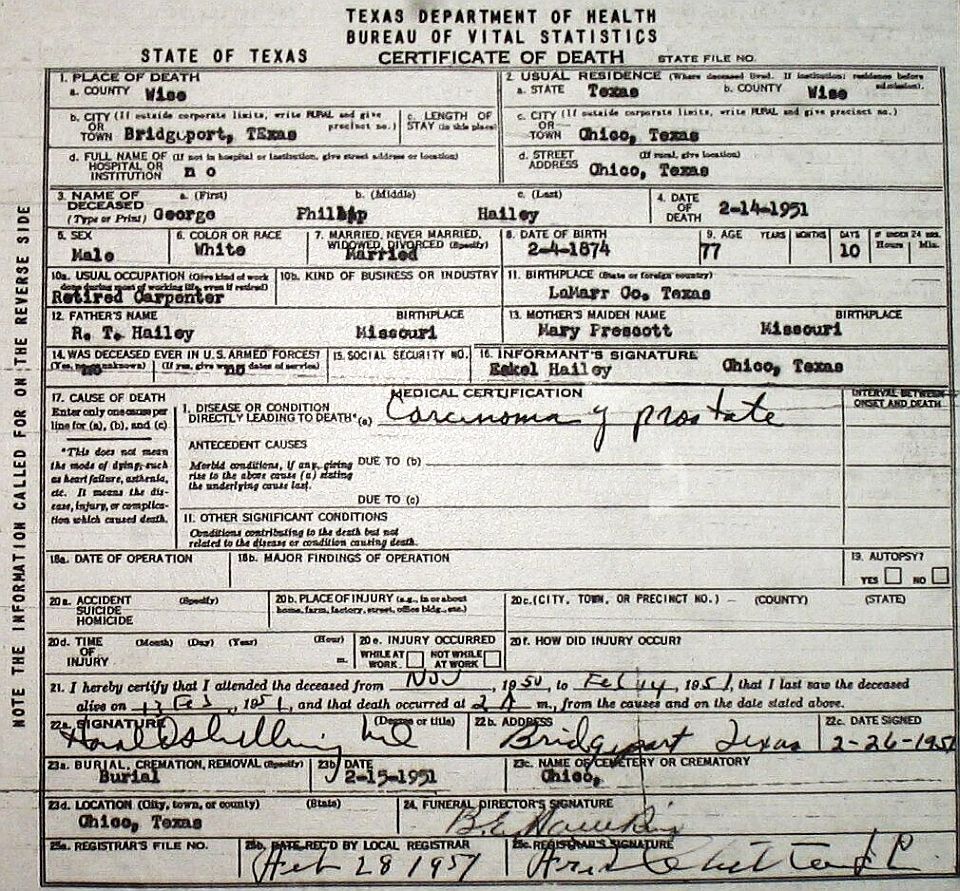 TEXAS DEPARTMENT OF HEALTH
BUREAU OF VITAL STATISTICS
STATE OF TEXAS CERTIFICATE OF DEATH STATE FILE NO.
NOTE THE INFORMATION CALLED FOR ON THE REVERSE SIDE
1. PLACE OF DEATH
a. COUNTY Wise
2. USUAL RESIDENCE (Where deceased lived. If institution: residence before admission).
a. STATE Texas b. COUNTY Wise
b. CITY (If outside corporate limits, write RURAL and give precinct no.)
OR
TOWN Bridguport, TExas
c. LENGTH OF
STAY (in this place)
c. CITY (If outside corporate limits, write RURAL and give precinct no.)
OR
TOWN Chico, Texas
d. FULL NAME OF (If not in hospital or institution, give street address or location)
HOSPITAL OR
INSTITUTION n o
d. STREET (If rural, give location)
ADDRESS Chico, Texas
3. NAME OF DECEASED a. (First) b. (Middle) c. (Last)
(Type or Print) George Phillip Hailey
4. DATE OF DEATH 2-14-1951
5. SEX
Male
6. COLOR OR RACE
White
7. MARRIED, NEVER MARRIED,
WIDOWED, DIVORCED (Specify)
Married
8. DATE OF BIRTH
2-4-1874
9. AGE YEARS MONTHS DAYS IF UNDER 24 HRS. Hours Min.
77 10
10a. USUAL OCCUPATION (Give kind of work
done during most of working life, even if retired)
Retired Carpenter
10b. KIND OF BUSINESS OR INDUSTRY
11. BIRTHPLACE (State or foreign country)
LaMarr Co, Texas
12. FATHER'S NAME BIRTHPLACE
R. T. Hailey Missouri
13. MOTHER'S MAIDEN NAME BIRTHPLACE
Mary Prescott Missouri
14. WAS DECEASED EVER IN U.S. ARMED FORCES?
(Yes, no, or unknown) (If yes, give war or dates of service)
no no
15. SOCIAL SECURITY NO.
16. INFORMANT'S SIGNATURE
Eskel Hailey Chico, Texas
17. CAUSE OF DEATH
Enter only one cause per
line for (a), (b), and (c)
*This does not mean
the mode of dying, such
as heart failure, asthenia,
etc. It means the dis-
ease, injury, or complica-
tion which caused death.
MEDICAL CERTIFICATION
INTERVAL BETWEEN
ONSET AND DEATH
I. DISEASE OR CONDITION
DIRECTLY LEADING TO DEATH*(a) Carcinoma of prostate
ANTECEDENT CAUSES
Morbid conditions, if any, giving
rise to the above cause (a) stating
the underlying cause last.
DUE TO (b)
DUE TO (c)
II. OTHER SIGNIFICANT CONDITIONS
Conditions contributing to the death but not
related to the disease or condition causing death.
18a. DATE OF OPERATION
18b. MAJOR FINDINGS OF OPERATION
19. AUTOPSY?
YES NO
20a. ACCIDENT (Specify)
SUICIDE
HOMICIDE
20b. PLACE OF INJURY (e.g., in or about
home, farm, factory, street, office bldg., etc.)
20c. (CITY, TOWN, OR PRECINCT NO.) (COUNTY) (STATE)
20d. TIME (Month) (Day) (Year) (Hour)
OF
INJURY m.
20e. INJURY OCCURRED
WHILE AT WORK NOT WHILE AT WORK
20f. HOW DID INJURY OCCUR?
21. I hereby certify that I attended the deceased from Nov, 1950, to Feb 14, 1951, that I last saw the deceased
alive on 13 Feb, 1951, and that death occurred at 2 A m., from the causes and on the date stated above.
22a. SIGNATURE (Degree or title)
22b. ADDRESS
Bridgeport Texas
22c. DATE SIGNED
2-26-1951
23a. BURIAL, CREMATION, REMOVAL (Specify)
Burial
23b. DATE
2-15-1951
23c. NAME OF CEMETERY OR CREMATORY
Chico,
23d. LOCATION (City, town, or county) (State)
Chico, Texas
24. FUNERAL DIRECTOR'S SIGNATURE
B.E. Hawkins
25a. REGISTRAR'S FILE NO.
25b. DATE REC'D BY LOCAL REGISTRAR
Feb 28 1951
25c. REGISTRAR'S SIGNATURE